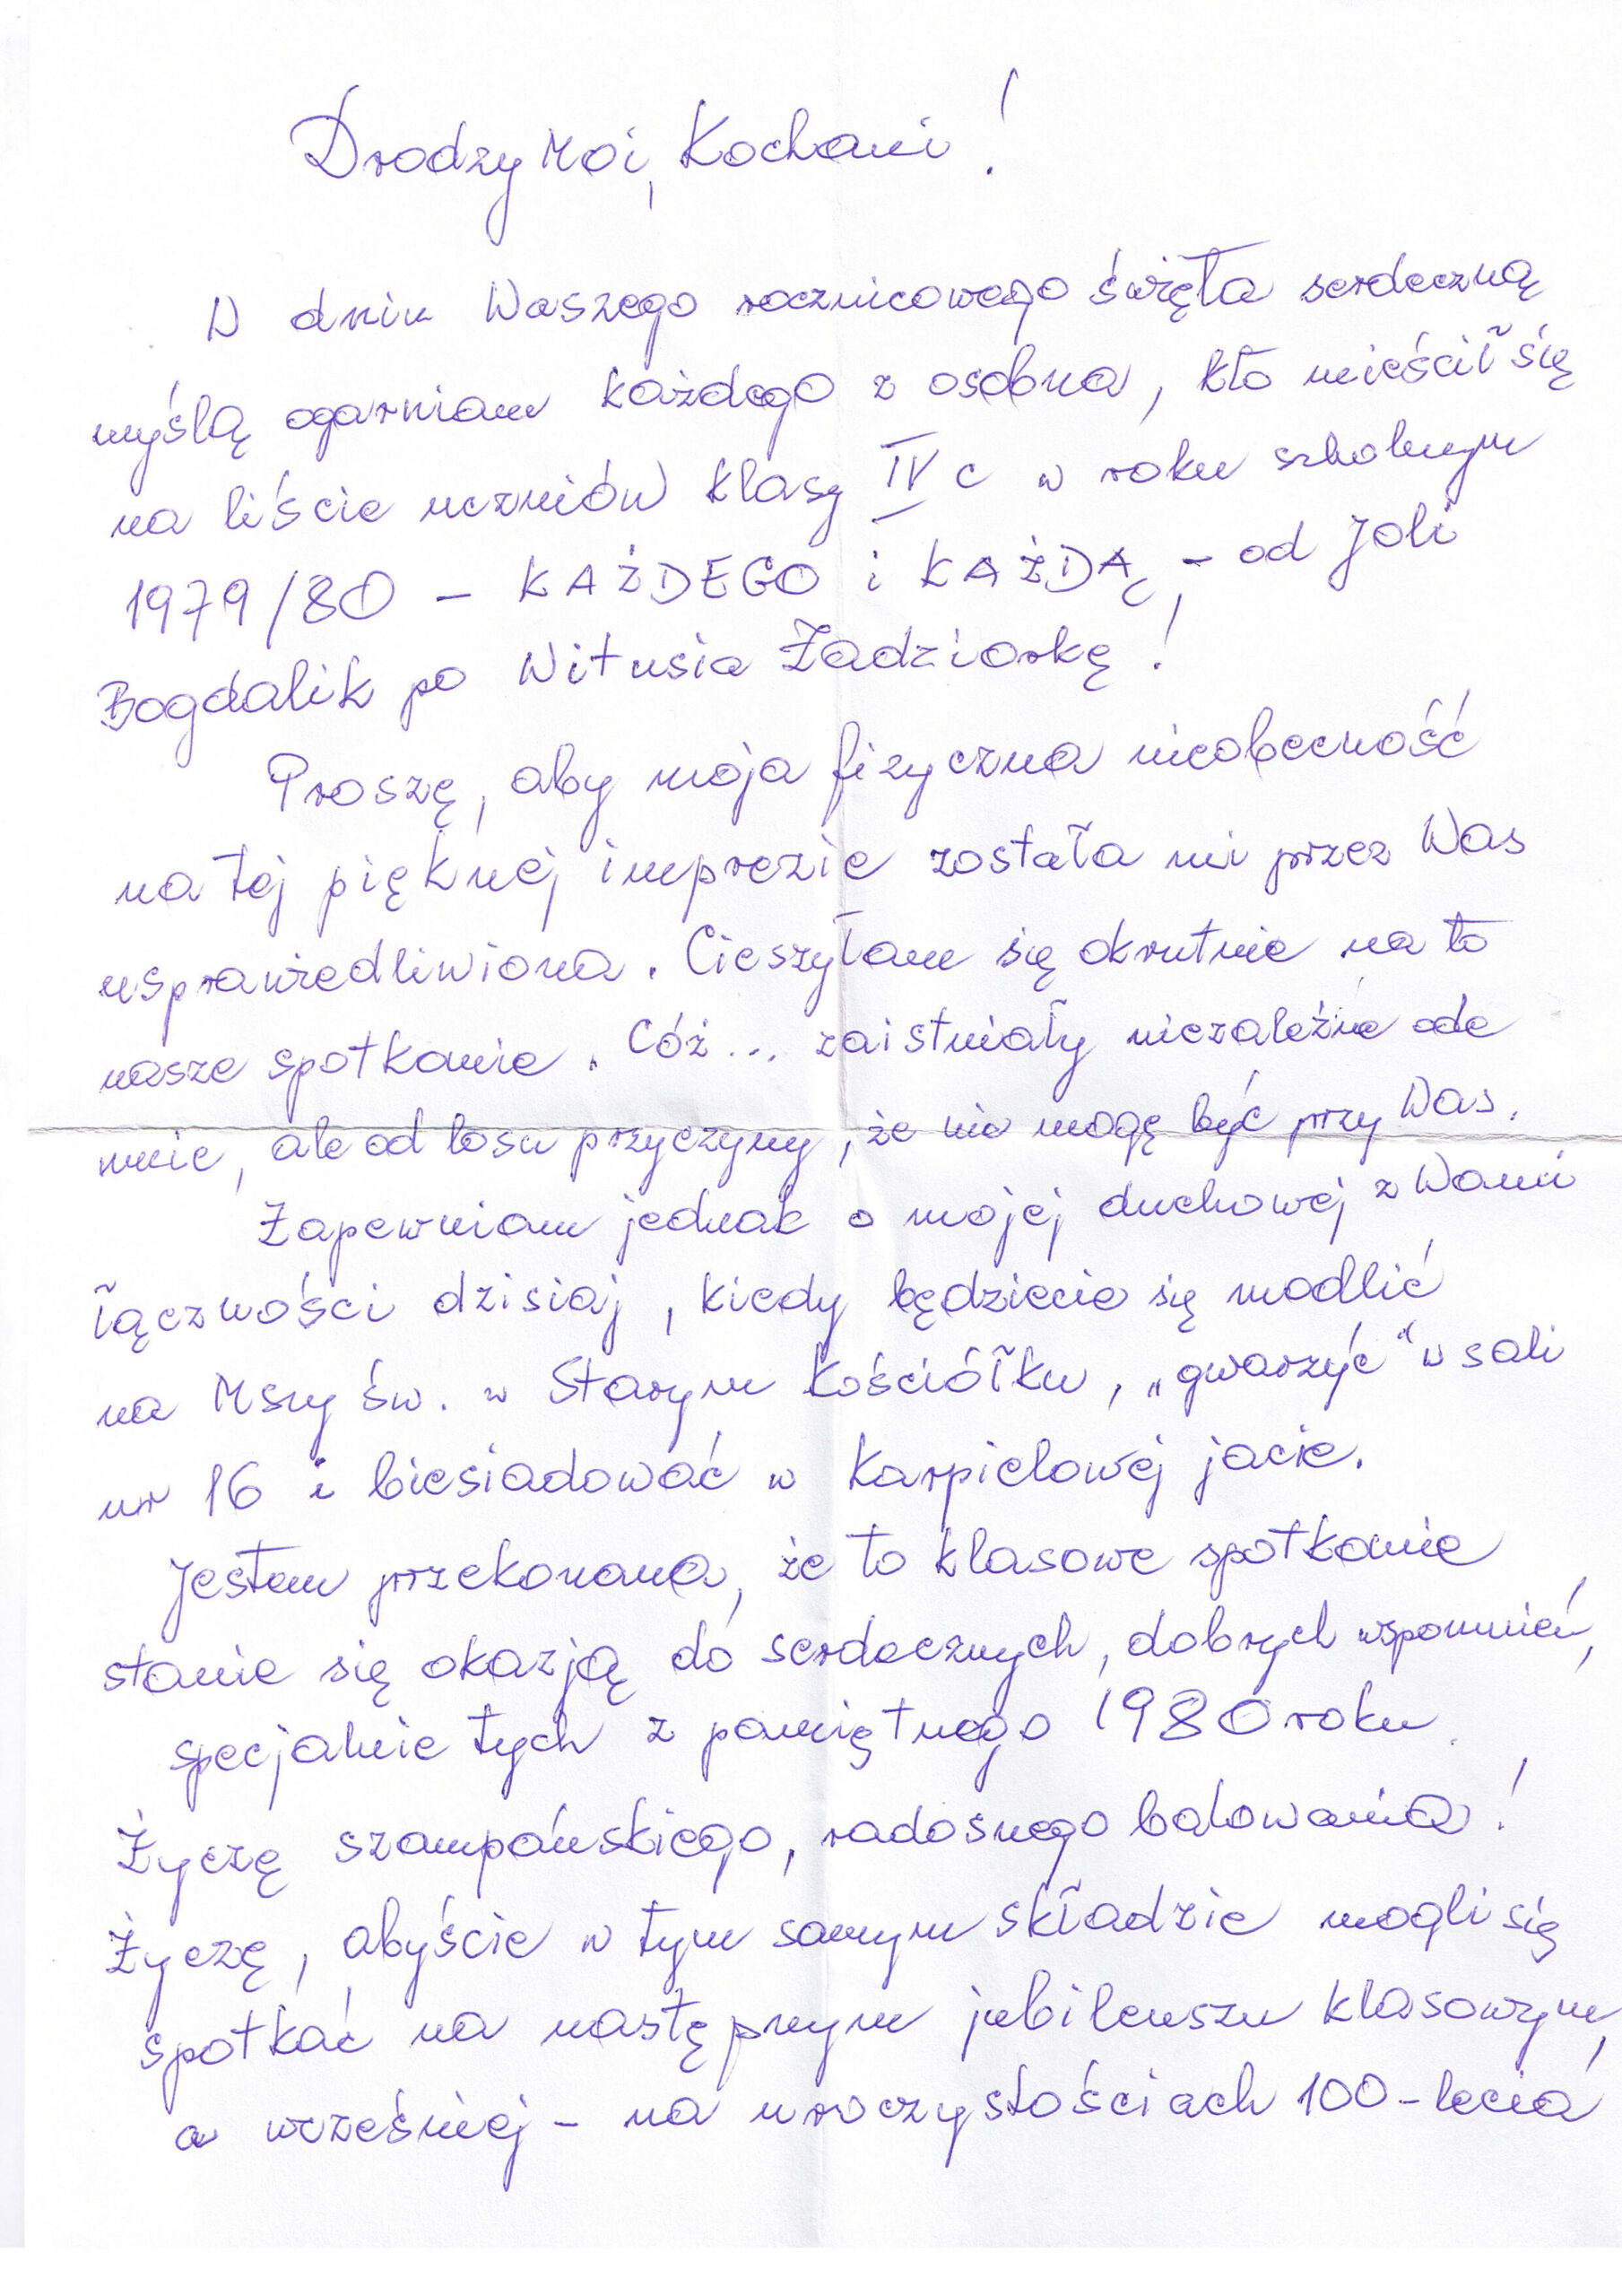 Drodzy Moi, Kochani!
W dniu Waszego rocznicowego święta serdeczną
myślą ogarniam każdego z osobna, kto mieścił się
na liście uczniów klasy IV c w roku szkolnym
1979/80 - KAŻDEGO i KAŻDĄ, - od Joli
Bogdalik po Witusia Zadziorkę!
Proszę, aby moja fizyczna nieobecność
na tej pięknej imprezie została mi przez Was
usprawiedliwiona. Cieszyłam się okrutnie na to
nasze spotkanie. Cóż... zaistniały niezależne ode
mnie, ale od losu przyczyny, że nie mogę być przy Was.
Zapewniam jednak o mojej duchowej z Wami
łączności dzisiaj, kiedy będziecie się modlić
na Mszy św. w Starym Kościółku, „gwarzyć" w sali
nr 16 i biesiadować w Karpielowej jacie.
Jestem przekonana, że to klasowe spotkanie
stanie się okazją do serdecznych, dobrych wspomnień,
specjalnie tych z pamiętnego 1980 roku.
Życzę szampańskiego, radosnego balowania!
Życzę, abyście w tym samym składzie mogli się
spotkać na następnym jubileuszu klasowym,
a wcześniej - na uroczystościach 100-lecia